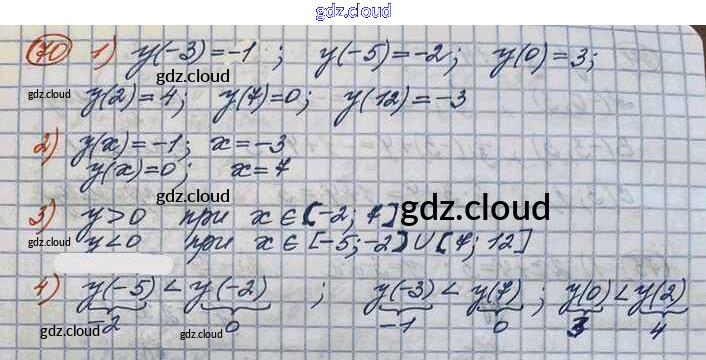 gdz.cloud
70 1) y(-3)=-1; y(-5)=-2; y(0)=3;
gdz.cloud
gdz.cloud y(2)=4; y(7)=0; y(12)=-3
gdz.cloud
2) y(x)=-1; x=-3
y(x)=0; x=7
gdz.cloud
3) y>0 при x∈[-2; 7]
gdz.cloud
gdz.cloud y<0 при x∈[-5;-2]∪[7; 12]
4) y(-5)<y(-2); y(-3)<y(7); y(0)<y(2)
-2 0 -1 0 3 4
gdz.cloud gdz.cloud